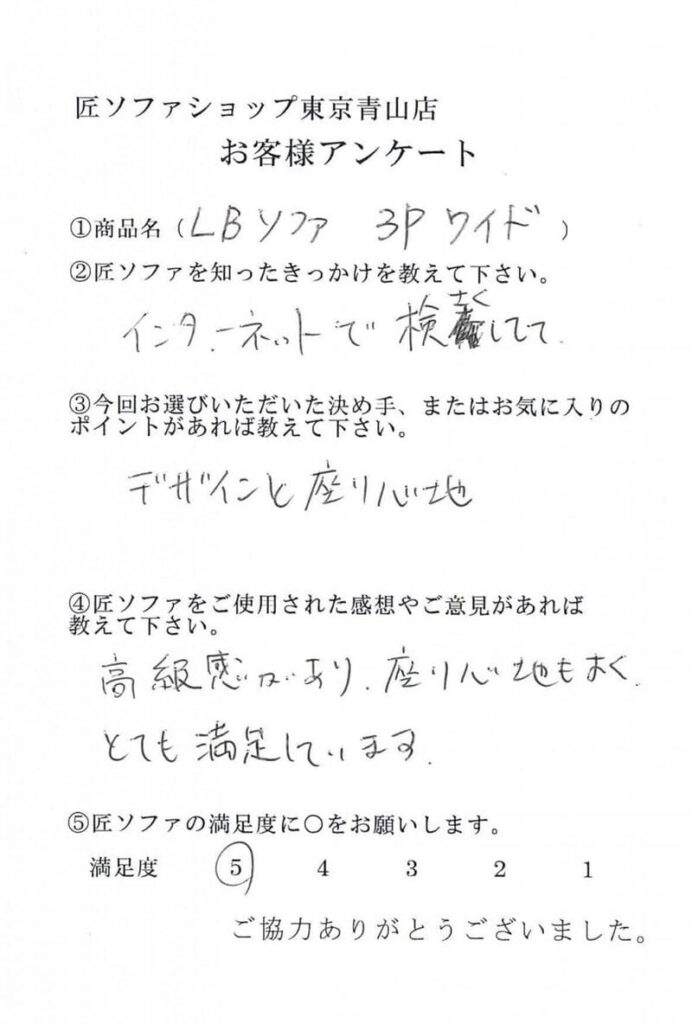 匠ソファショップ東京青山店
お客様アンケート
①商品名（LBソファ 3Pワイド）
②匠ソファを知ったきっかけを教えて下さい。
インターネットで検さくしてて.
③今回お選びいただいた決め手、またはお気に入りの
ポイントがあれば教えて下さい。
デザインと座り心地
④匠ソファをご使用された感想やご意見があれば
教えて下さい。
高級感があり、座り心地も
とても満足しています.
⑤匠ソファの満足度に○をお願いします。
満足度 5 4 3 2 1
ご協力ありがとうございました。